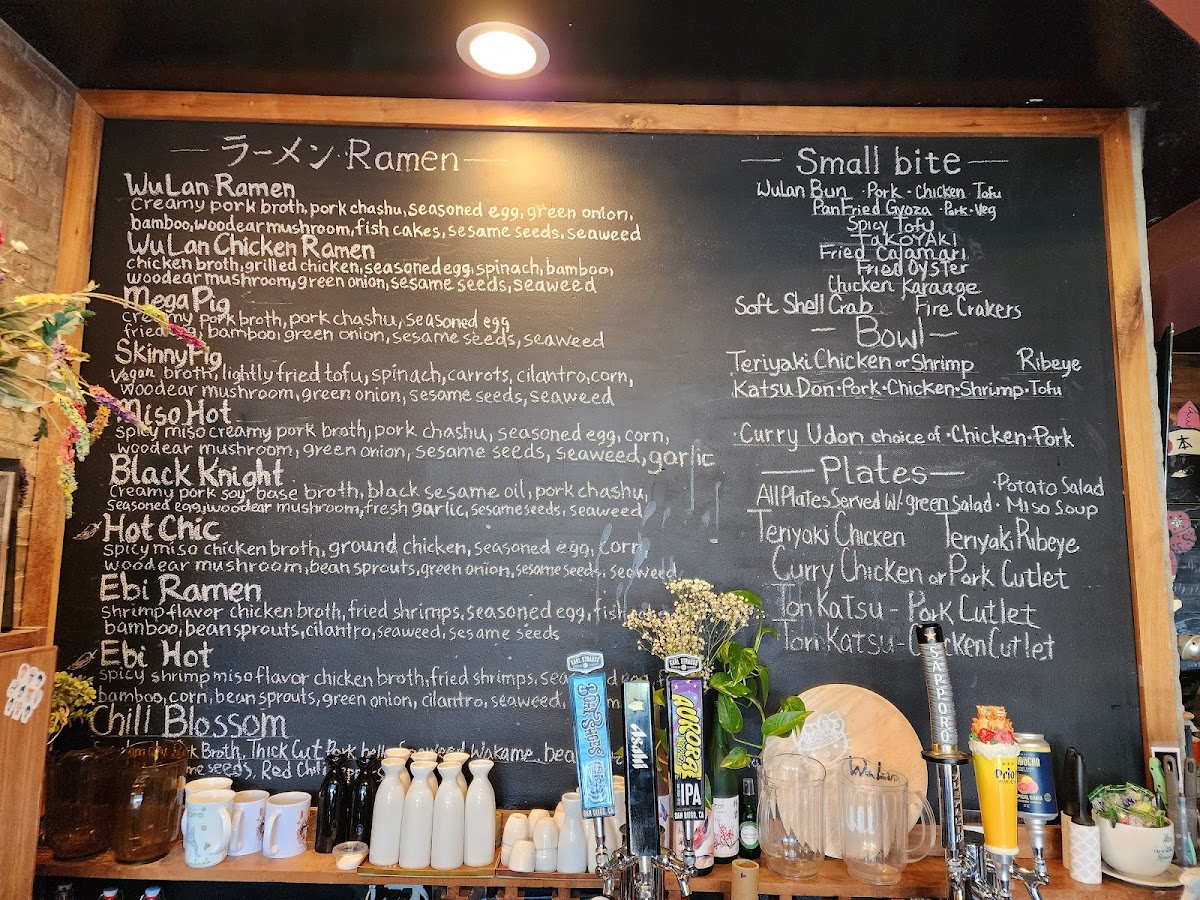 ラーメン Ramen
WuLan Ramen
Creamy pork broth, pork chashu, seasoned egg, green onion,
bamboo, woodear mushroom, fish cakes, sesame seeds, seaweed
WuLan Chicken Ramen
chicken broth, grilled chicken, seasoned egg, spinach, bamboo,
woodear mushroom, green onion, sesame seeds, seaweed
Mega Pig
creamy pork broth, pork chashu, seasoned egg
fried egg, bamboo, green onion, sesame seeds, seaweed
Skinny Pig
Vegan broth, lightly fried tofu, spinach, carrots, cilantro, corn,
woodear mushroom, green onion, sesame seeds, seaweed
Miso Hot
spicy miso creamy pork broth, pork chashu, seasoned egg, corn,
woodear mushroom, green onion, sesame seeds, seaweed, garlic
Black Knight
Creamy pork soy base broth, black sesame oil, pork chashu,
Seasoned egg, woodear mushroom, fresh garlic, sesame seeds, seaweed
Hot Chic
spicy miso chicken broth, ground chicken, seasoned egg, corn,
woodear mushroom, bean sprouts, green onion, sesame seeds, seaweed
Ebi Ramen
Shrimp flavor chicken broth, fried shrimps, seasoned egg, fish
bamboo, bean sprouts, cilantro, seaweed, sesame seeds
Ebi Hot
spicy shrimp miso flavor chicken broth, fried shrimps,
bamboo, corn, bean sprouts, green onion, cilantro, seaweed,
Chill Blossom
Broth, Thick Cut Pork belly, Seaweed Wakame,
seeds, Red
Small bite
Wulan Bun · Pork · Chicken · Tofu
Pan Fried Gyoza · Pork · Veg
Spicy Tofu
TAKOYAKI
Fried Calamari
Fried Oyster
Chicken Karaage
Soft Shell Crab Fire Crakers
Bowl
Teriyaki Chicken or Shrimp Ribeye
Katsu Don · Pork · Chicken · Shrimp · Tofu
· Curry Udon choice of · Chicken · Pork
Plates
· Potato Salad
All Plates Served w/ green Salad · Miso Soup
Teriyaki Chicken Teriyaki Ribeye
Curry Chicken or Pork Cutlet
Ton Katsu - Pork Cutlet
Tori Katsu - Chicken Cutlet
KARL STRAUSS
BOAT SHOES
SAN DIEGO, CA
Asahi
KARL STRAUSS
AURORA
IPA
SAN DIEGO, CA
SAPPORO
Orion
本